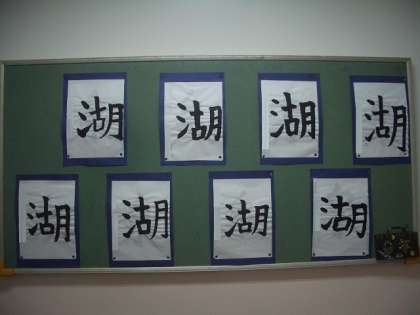 湖 湖 湖 湖
湖 湖 湖 湖